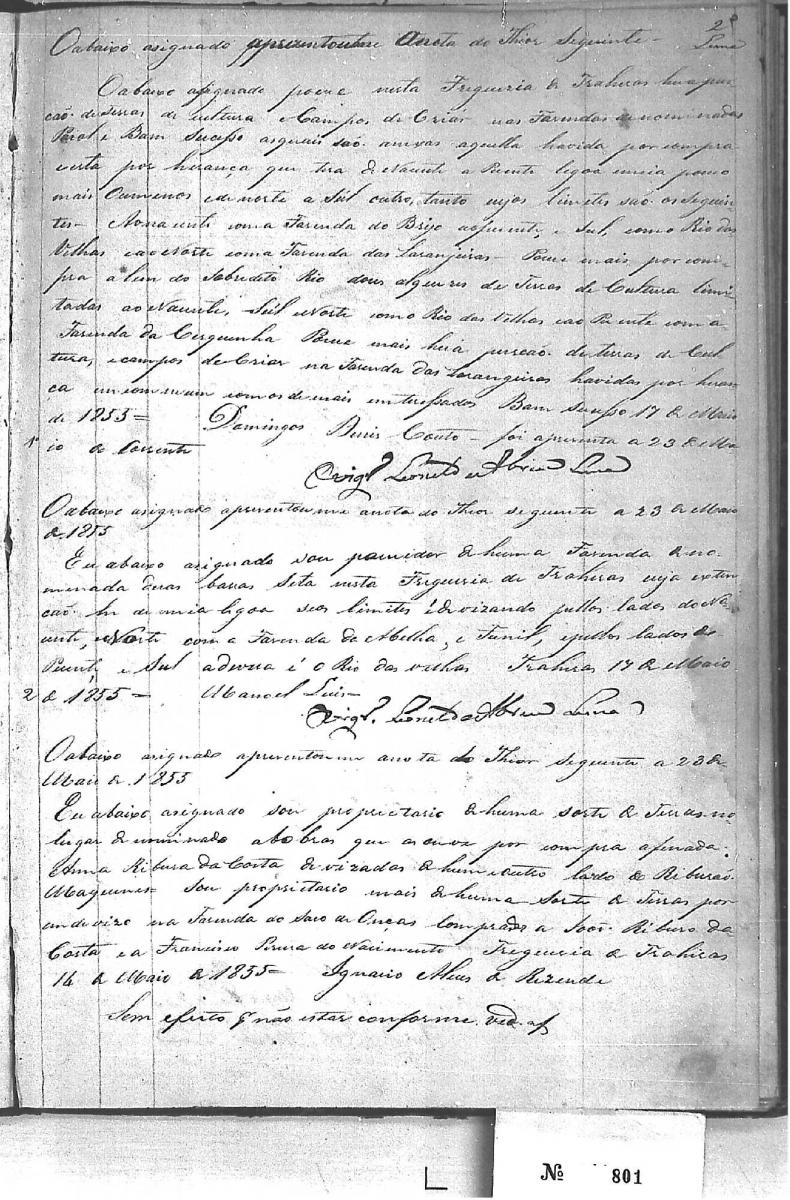 2
Lima
O abaixo asignado apresentoume anota do Thior Seguinte -
O abaixo asignado pocue nesta Freguezia de Trahiras hua pur
cão de terras de cultura e Campos de Criar nas Fazendas denominadas
e Bam Sucesso asquais são anexas aquella havida por compra
e esta por herança que tera de Naciente a Puente legoa e meia pouco
mais Oumenos e de norte a Sul outro tanto cujos limetes sao os Seguin
tes - Aonacente coma Fazenda do Brejo aopuente e Sul, com o Rio das
Velhas e ao Norte coma Fazenda das Laranjeiras - Pocue mais por com
pra alem do Sobredito Rio dous alqueires de Terras de Cultura limi
tadas ao Naciente, Sul e Norte com o Rio das Velhas e ao Puente com a
Fazenda da Cerquinha Pocue mais huã purcão de terras de Cul
tura, e campos de Criar na Fazenda das Larangeiras havidas por heran
ca emcommum com os de mais emtereçados Bam Sucesso 17 de Maio
de 1855 = Domingos Couto - foi apresenta a 23 de Ma
1º
io do Corrente
O Vigrº Leonel de Abreu Lima
O abaixo asignado apresentoume anota do Thior seguinte a 23 de Maio
de 1855
Eu abaixo asignado sou pocuidor de huma Fazenda de no
menada duas barras Seta nesta Freguezia de Trahiras cuja exten
cão he de meia legoa seos limetes é devizando pellos lados do Na
cente, e Norte com a Fazenda da Abelha, e Funil, e pellos lados do
Puente, e Sul adeviza é o Rio das velhas Trahiras 17 de Maio
2
de 1855 = Manoel Luis -
O Vigrº. Leonel de Abreu Lima
O abaixo asignado apresentoume anota do Thior seguinte a 23 de
Maio de 1855
Eu abaixo asignado sou proprietario de huma sorte de Terras no
lugar denuminado abobras que por compra afinada
Anna Ribura da Costa devizadas de hum e outro lado do Riburão
Maquiné Sou proprietario mais de huma Sorte de Terras por
endevizo na Fazenda do Saco da Onças Comprados a João Riburo da
Costa e a Francisco Perura do Nacimento Freguezia de Trahiras
14 de Maio de 1855 = Ignacio Alves de Rezende
Sem efeito q não estar conforme
Nº 801